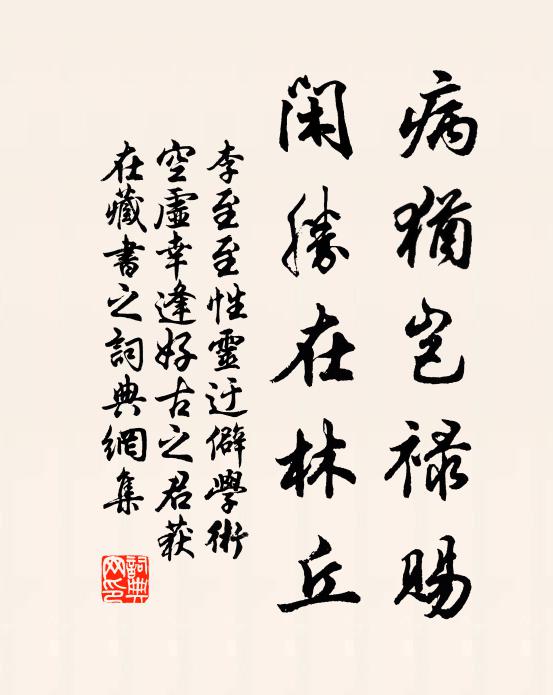 病猶岂禄赐
闲勝在林丘
李至至性靈迂僻學術
空虛幸逢好古之君获
在藏書之詞典網集
詞典網印